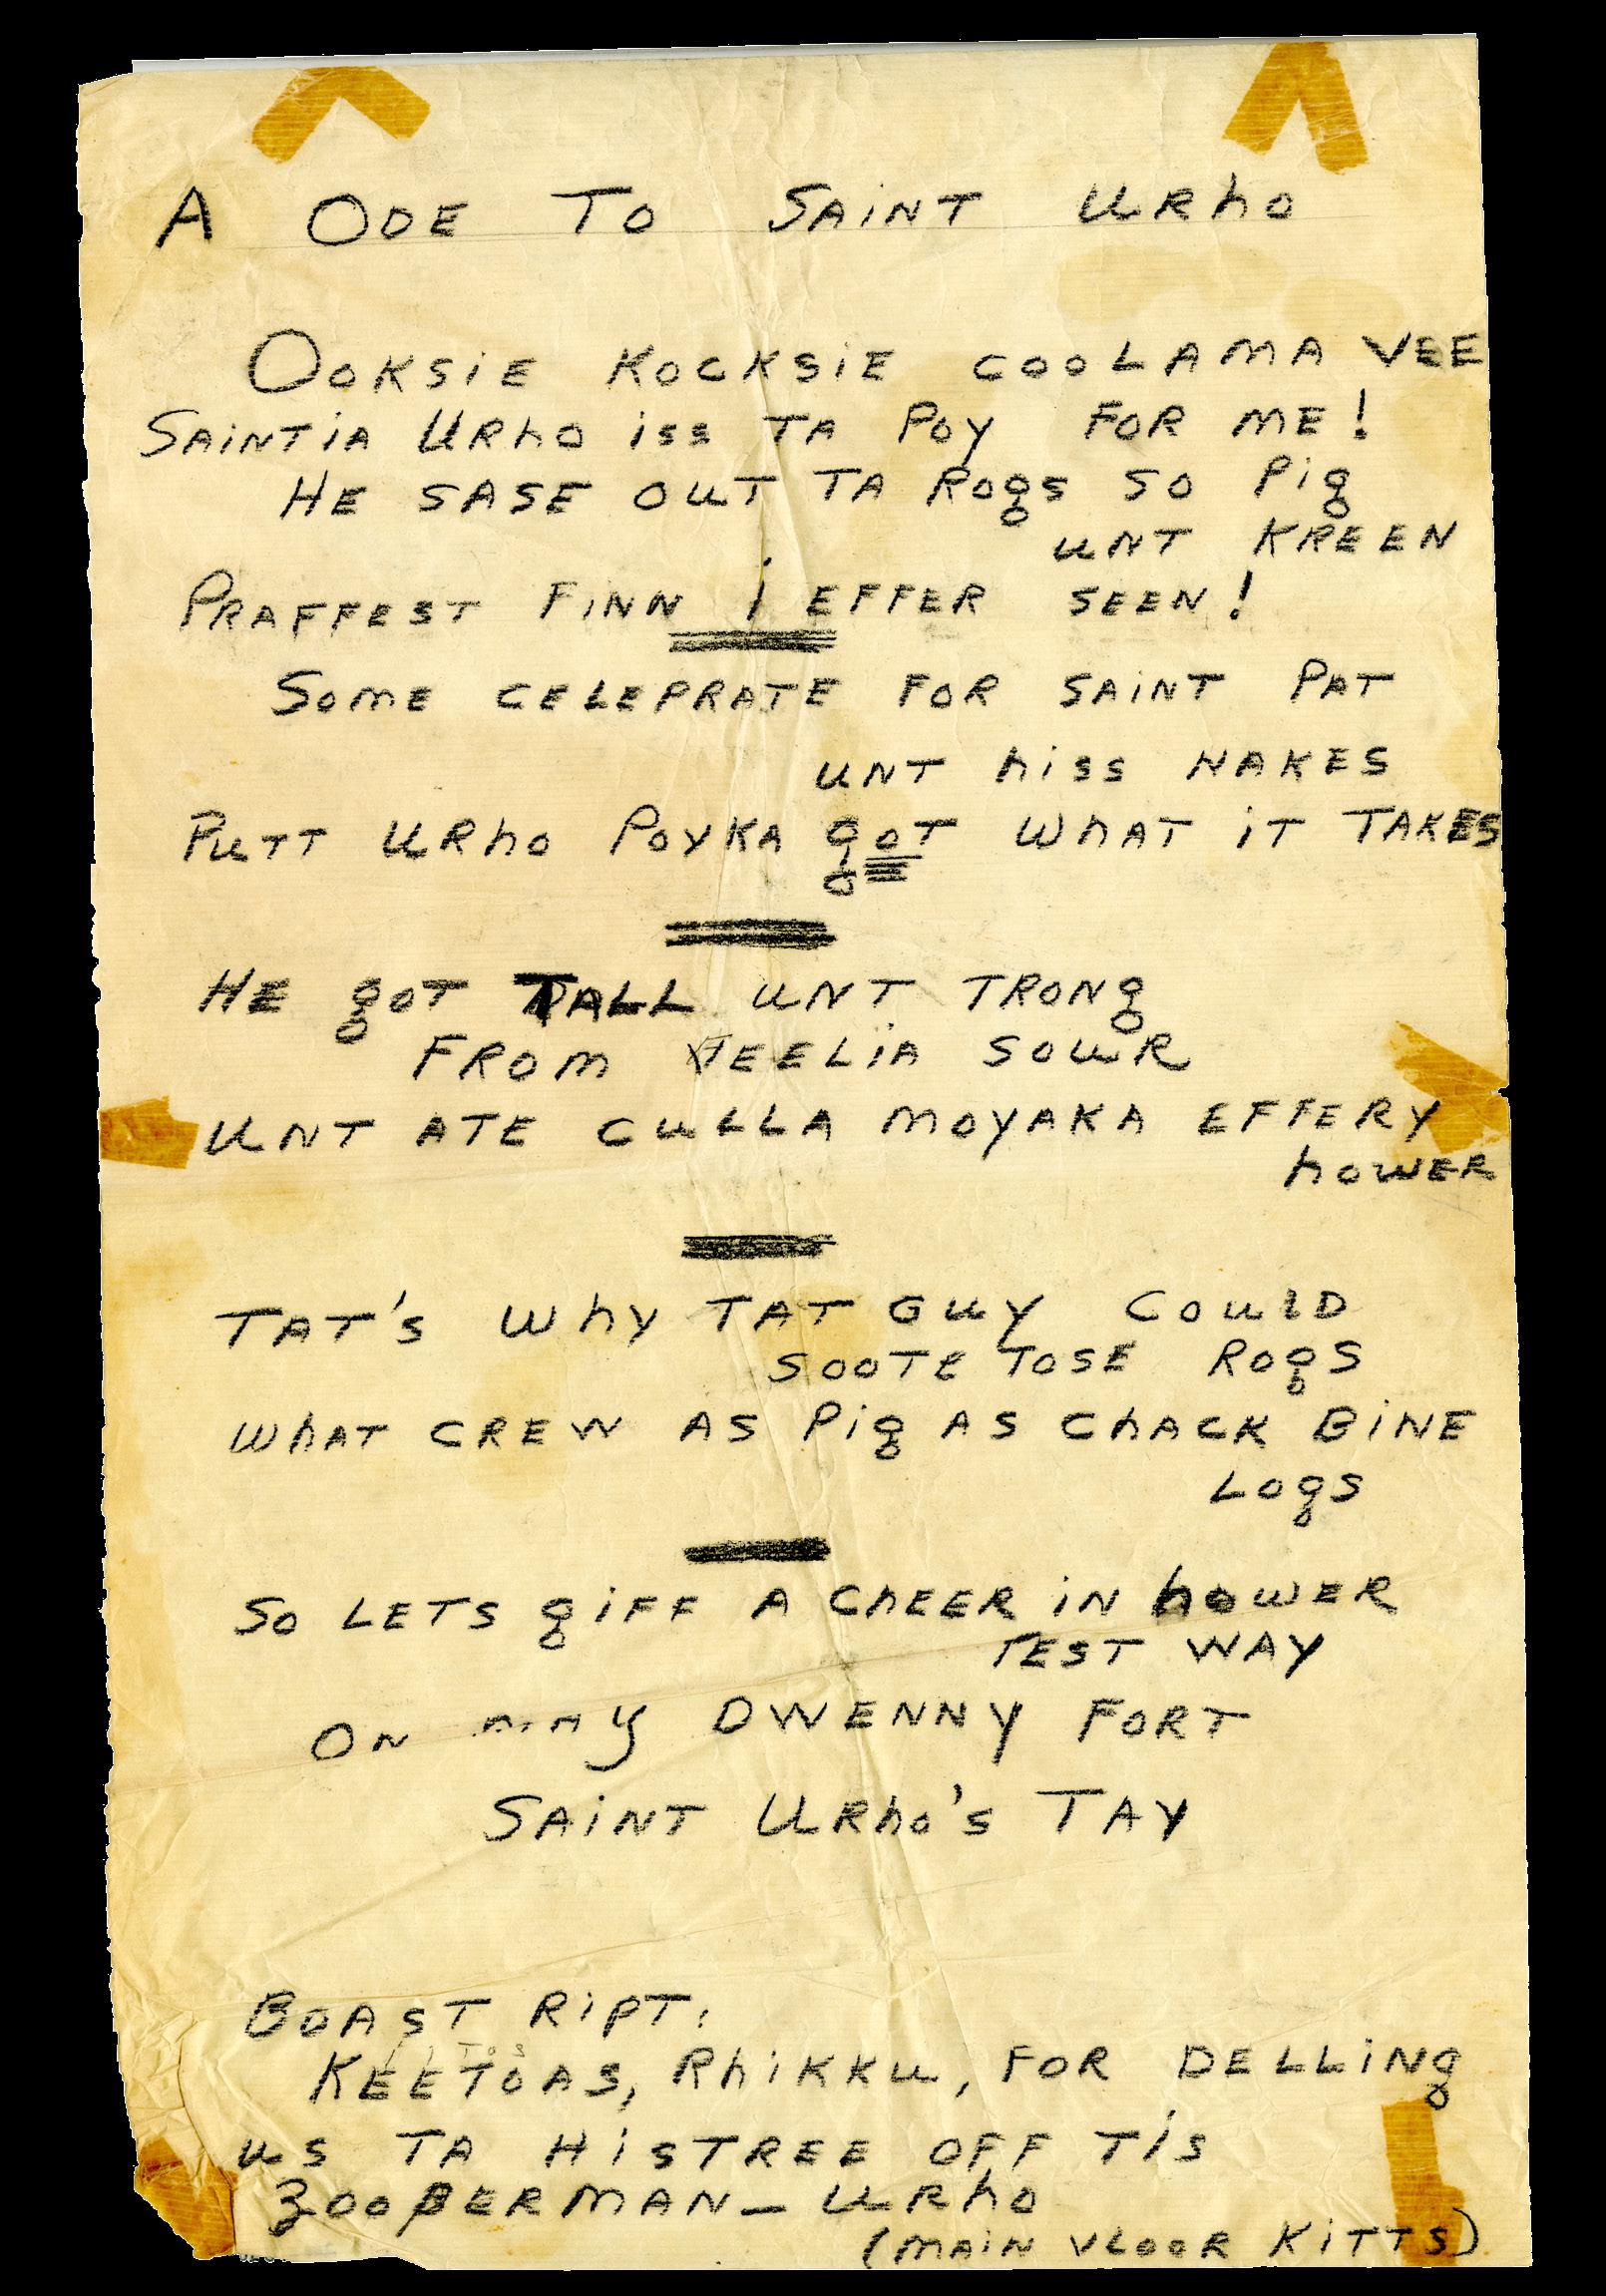 A ODE TO SAINT URHO
OOKSIE KOCKSIE COOLAMA VEE
SAINTIA URHO ISS TA POY FOR ME!
HE SASE OUT TA ROGS SO PIG
UNT KREEN
PRAFFEST FINN I EFFER SEEN!
SOME CELEPRATE FOR SAINT PAT
UNT HISS NAKES
PUTT URHO POYKA GOT WHAT IT TAKES
HE GOT TALL UNT TRONG
FROM FEELIA SOUR
UNT ATE CULLA MOYAKA EFFERY
HOWER
TAT'S WHY TAT GUY COULD
SOOTE TOSE ROGS
WHAT CREW AS PIG AS CHACK BINE
LOGS
SO LETS GIFF A CHEER IN HOWER
TEST WAY
ON MAY DWENNY FORT
SAINT URHO'S TAY
BOAST RIPT:
KEETOAS, RHIKKU, FOR DELLING
US TA HISTREE OFF TIS
ZOOPERMAN - URHO
(MAIN VLOOR KITTS)